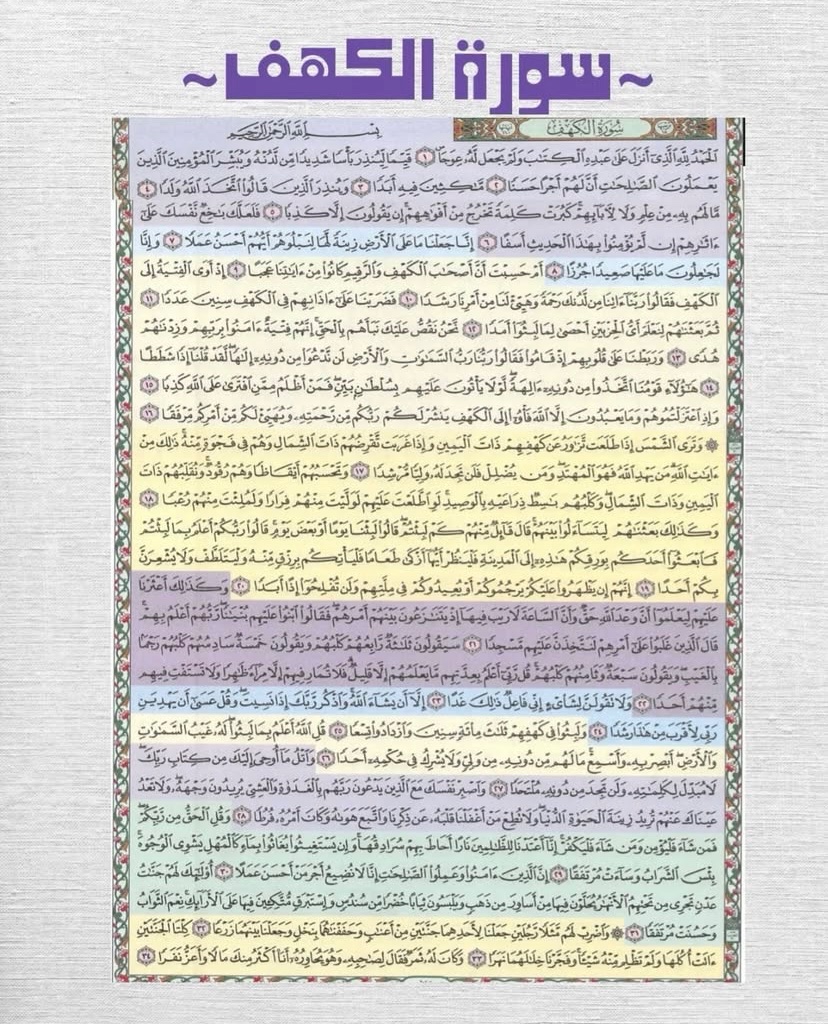 ~سورة الكهف~
سُورَةُ الكَهْفِ بِسْمِ اللَّهِ الرَّحْمَٰنِ الرَّحِيمِ
الْحَمْدُ لِلَّهِ الَّذِي أَنزَلَ عَلَىٰ عَبْدِهِ الْكِتَٰبَ وَلَمْ يَجْعَل لَّهُ عِوَجَا ۜ ١ قَيِّمًا لِّيُنذِرَ بَأْسًا شَدِيدًا مِّن لَّدُنْهُ وَيُبَشِّرَ الْمُؤْمِنِينَ الَّذِينَ
يَعْمَلُونَ الصَّٰلِحَٰتِ أَنَّ لَهُمْ أَجْرًا حَسَنًا ٢ مَّٰكِثِينَ فِيهِ أَبَدًا ٣ وَيُنذِرَ الَّذِينَ قَالُوا اتَّخَذَ اللَّهُ وَلَدًا ٤
مَّا لَهُم بِهِ مِنْ عِلْمٍ وَلَا لِءَابَائِهِمْ كَبُرَتْ كَلِمَةً تَخْرُجُ مِنْ أَفْوَٰهِهِمْ إِن يَقُولُونَ إِلَّا كَذِبًا ٥ فَلَعَلَّكَ بَٰخِعٌ نَّفْسَكَ عَلَىٰ
ءَاثَٰرِهِمْ إِن لَّمْ يُؤْمِنُوا بِهَٰذَا الْحَدِيثِ أَسَفًا ٦ إِنَّا جَعَلْنَا مَا عَلَى الْأَرْضِ زِينَةً لَّهَا لِنَبْلُوَهُمْ أَيُّهُمْ أَحْسَنُ عَمَلًا ٧ وَإِنَّا
لَجَٰعِلُونَ مَا عَلَيْهَا صَعِيدًا جُرُزًا ٨ أَمْ حَسِبْتَ أَنَّ أَصْحَٰبَ الْكَهْفِ وَالرَّقِيمِ كَانُوا مِنْ ءَايَٰتِنَا عَجَبًا ٩ إِذْ أَوَى الْفِتْيَةُ إِلَى
الْكَهْفِ فَقَالُوا رَبَّنَا ءَاتِنَا مِن لَّدُنكَ رَحْمَةً وَهَيِّئْ لَنَا مِنْ أَمْرِنَا رَشَدًا ١٠ فَضَرَبْنَا عَلَىٰ ءَاذَانِهِمْ فِي الْكَهْفِ سِنِينَ عَدَدًا ١١
ثُمَّ بَعَثْنَٰهُمْ لِنَعْلَمَ أَيُّ الْحِزْبَيْنِ أَحْصَىٰ لِمَا لَبِثُوا أَمَدًا ١٢ نَّحْنُ نَقُصُّ عَلَيْكَ نَبَأَهُم بِالْحَقِّ إِنَّهُمْ فِتْيَةٌ ءَامَنُوا بِرَبِّهِمْ وَزِدْنَٰهُمْ
هُدًى ١٣ وَرَبَطْنَا عَلَىٰ قُلُوبِهِمْ إِذْ قَامُوا فَقَالُوا رَبُّنَا رَبُّ السَّمَٰوَٰتِ وَالْأَرْضِ لَن نَّدْعُوَا مِن دُونِهِ إِلَٰهًا لَّقَدْ قُلْنَا إِذًا شَطَطًا
١٤ هَٰؤُلَاءِ قَوْمُنَا اتَّخَذُوا مِن دُونِهِ ءَالِهَةً لَّوْلَا يَأْتُونَ عَلَيْهِم بِسُلْطَٰنٍ بَيِّنٍ فَمَنْ أَظْلَمُ مِمَّنِ افْتَرَىٰ عَلَى اللَّهِ كَذِبًا ١٥
وَإِذِ اعْتَزَلْتُمُوهُمْ وَمَا يَعْبُدُونَ إِلَّا اللَّهَ فَأْوُوا إِلَى الْكَهْفِ يَنشُرْ لَكُمْ رَبُّكُم مِّن رَّحْمَتِهِ وَيُهَيِّئْ لَكُم مِّنْ أَمْرِكُم مِّرْفَقًا ١٦
۞ وَتَرَى الشَّمْسَ إِذَا طَلَعَت تَّزَٰوَرُ عَن كَهْفِهِمْ ذَاتَ الْيَمِينِ وَإِذَا غَرَبَت تَّقْرِضُهُمْ ذَاتَ الشِّمَالِ وَهُمْ فِي فَجْوَةٍ مِّنْهُ ذَٰلِكَ مِنْ
ءَايَٰتِ اللَّهِ مَن يَهْدِ اللَّهُ فَهُوَ الْمُهْتَدِ وَمَن يُضْلِلْ فَلَن تَجِدَ لَهُ وَلِيًّا مُّرْشِدًا ١٧ وَتَحْسَبُهُمْ أَيْقَاظًا وَهُمْ رُقُودٌ وَنُقَلِّبُهُمْ ذَاتَ
الْيَمِينِ وَذَاتَ الشِّمَالِ وَكَلْبُهُم بَٰسِطٌ ذِرَاعَيْهِ بِالْوَصِيدِ لَوِ اطَّلَعْتَ عَلَيْهِمْ لَوَلَّيْتَ مِنْهُمْ فِرَارًا وَلَمُلِئْتَ مِنْهُمْ رُعْبًا ١٨
وَكَذَٰلِكَ بَعَثْنَٰهُمْ لِيَتَسَاءَلُوا بَيْنَهُمْ قَالَ قَائِلٌ مِّنْهُمْ كَمْ لَبِثْتُمْ قَالُوا لَبِثْنَا يَوْمًا أَوْ بَعْضَ يَوْمٍ قَالُوا رَبُّكُمْ أَعْلَمُ بِمَا لَبِثْتُمْ
فَابْعَثُوا أَحَدَكُم بِوَرِقِكُمْ هَٰذِهِ إِلَى الْمَدِينَةِ فَلْيَنظُرْ أَيُّهَا أَزْكَىٰ طَعَامًا فَلْيَأْتِكُم بِرِزْقٍ مِّنْهُ وَلْيَتَلَطَّفْ وَلَا يُشْعِرَنَّ
بِكُمْ أَحَدًا ١٩ إِنَّهُمْ إِن يَظْهَرُوا عَلَيْكُمْ يَرْجُمُوكُمْ أَوْ يُعِيدُوكُمْ فِي مِلَّتِهِمْ وَلَن تُفْلِحُوا إِذًا أَبَدًا ٢٠ وَكَذَٰلِكَ أَعْثَرْنَا
عَلَيْهِمْ لِيَعْلَمُوا أَنَّ وَعْدَ اللَّهِ حَقٌّ وَأَنَّ السَّاعَةَ لَا رَيْبَ فِيهَا إِذْ يَتَنَٰزَعُونَ بَيْنَهُمْ أَمْرَهُمْ فَقَالُوا ابْنُوا عَلَيْهِم بُنْيَٰنًا رَّبُّهُمْ أَعْلَمُ بِهِمْ
قَالَ الَّذِينَ غَلَبُوا عَلَىٰ أَمْرِهِمْ لَنَتَّخِذَنَّ عَلَيْهِم مَّسْجِدًا ٢١ سَيَقُولُونَ ثَلَٰثَةٌ رَّابِعُهُمْ كَلْبُهُمْ وَيَقُولُونَ خَمْسَةٌ سَادِسُهُمْ كَلْبُهُمْ رَجْمًا
بِالْغَيْبِ وَيَقُولُونَ سَبْعَةٌ وَثَامِنُهُمْ كَلْبُهُمْ قُل رَّبِّي أَعْلَمُ بِعِدَّتِهِم مَّا يَعْلَمُهُمْ إِلَّا قَلِيلٌ فَلَا تُمَارِ فِيهِمْ إِلَّا مِرَاءً ظَٰهِرًا وَلَا تَسْتَفْتِ فِيهِم
مِّنْهُمْ أَحَدًا ٢٢ وَلَا تَقُولَنَّ لِشَايْءٍ إِنِّي فَاعِلٌ ذَٰلِكَ غَدًا ٢٣ إِلَّا أَن يَشَاءَ اللَّهُ وَاذْكُر رَّبَّكَ إِذَا نَسِيتَ وَقُلْ عَسَىٰ أَن يَهْدِيَنِ
رَبِّي لِأَقْرَبَ مِنْ هَٰذَا رَشَدًا ٢٤ وَلَبِثُوا فِي كَهْفِهِمْ ثَلَٰثَ مِائَةٍ سِنِينَ وَازْدَادُوا تِسْعًا ٢٥ قُلِ اللَّهُ أَعْلَمُ بِمَا لَبِثُوا لَهُ غَيْبُ السَّمَٰوَٰتِ
وَالْأَرْضِ أَبْصِرْ بِهِ وَأَسْمِعْ مَا لَهُم مِّن دُونِهِ مِن وَلِيٍّ وَلَا يُشْرِكُ فِي حُكْمِهِ أَحَدًا ٢٦ وَاتْلُ مَا أُوحِيَ إِلَيْكَ مِن كِتَابِ رَبِّكَ
لَا مُبَدِّلَ لِكَلِمَٰتِهِ وَلَن تَجِدَ مِن دُونِهِ مُلْتَحَدًا ٢٧ وَاصْبِرْ نَفْسَكَ مَعَ الَّذِينَ يَدْعُونَ رَبَّهُم بِالْغَدَوٰةِ وَالْعَشِيِّ يُرِيدُونَ وَجْهَهُ وَلَا تَعْدُ
عَيْنَاكَ عَنْهُمْ تُرِيدُ زِينَةَ الْحَيَوٰةِ الدُّنْيَا وَلَا تُطِعْ مَنْ أَغْفَلْنَا قَلْبَهُ عَن ذِكْرِنَا وَاتَّبَعَ هَوَىٰهُ وَكَانَ أَمْرُهُ فُرُطًا ٢٨ وَقُلِ الْحَقُّ مِن رَّبِّكُمْ
فَمَن شَاءَ فَلْيُؤْمِن وَمَن شَاءَ فَلْيَكْفُرْ إِنَّا أَعْتَدْنَا لِلظَّٰلِمِينَ نَارًا أَحَاطَ بِهِمْ سُرَادِقُهَا وَإِن يَسْتَغِيثُوا يُغَاثُوا بِمَاءٍ كَالْمُهْلِ يَشْوِي الْوُجُوهَ
بِئْسَ الشَّرَابُ وَسَاءَتْ مُرْتَفَقًا ٢٩ إِنَّ الَّذِينَ ءَامَنُوا وَعَمِلُوا الصَّٰلِحَٰتِ إِنَّا لَا نُضِيعُ أَجْرَ مَنْ أَحْسَنَ عَمَلًا ٣٠ أُولَٰئِكَ لَهُمْ جَنَّٰتُ
عَدْنٍ تَجْرِي مِن تَحْتِهِمُ الْأَنْهَٰرُ يُحَلَّوْنَ فِيهَا مِنْ أَسَاوِرَ مِن ذَهَبٍ وَيَلْبَسُونَ ثِيَابًا خُضْرًا مِّن سُندُسٍ وَإِسْتَبْرَقٍ مُّتَّكِئِينَ فِيهَا عَلَى الْأَرَائِكِ نِعْمَ الثَّوَابُ
وَحَسُنَتْ مُرْتَفَقًا ٣١ ۞ وَاضْرِبْ لَهُم مَّثَلًا رَّجُلَيْنِ جَعَلْنَا لِأَحَدِهِمَا جَنَّتَيْنِ مِنْ أَعْنَٰبٍ وَحَفَفْنَٰهُمَا بِنَخْلٍ وَجَعَلْنَا بَيْنَهُمَا زَرْعًا ٣٢ كِلْتَا الْجَنَّتَيْنِ
ءَاتَتْ أُكُلَهَا وَلَمْ تَظْلِم مِّنْهُ شَيْئًا وَفَجَّرْنَا خِلَٰلَهُمَا نَهَرًا ٣٣ وَكَانَ لَهُ ثَمَرٌ فَقَالَ لِصَٰحِبِهِ وَهُوَ يُحَاوِرُهُ أَنَا أَكْثَرُ مِنكَ مَالًا وَأَعَزُّ نَفَرًا ٣٤